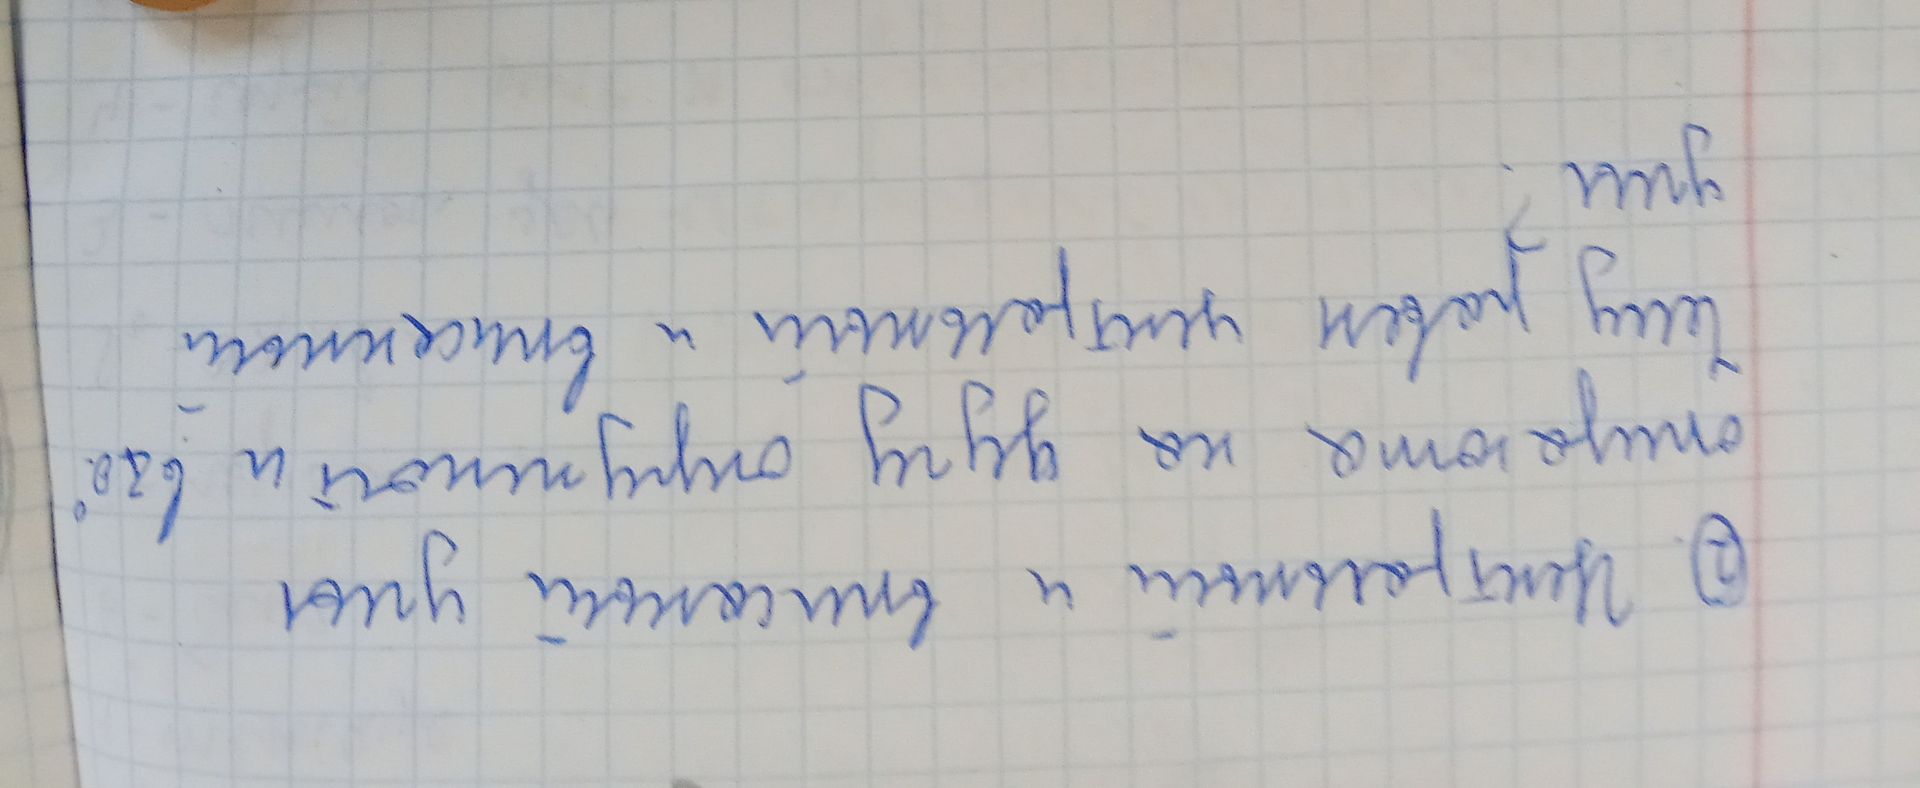 ② Центральный и вписанный углы
опираются на дугу окружности в 120°.
Чему равен центральный и вписанный
углы?